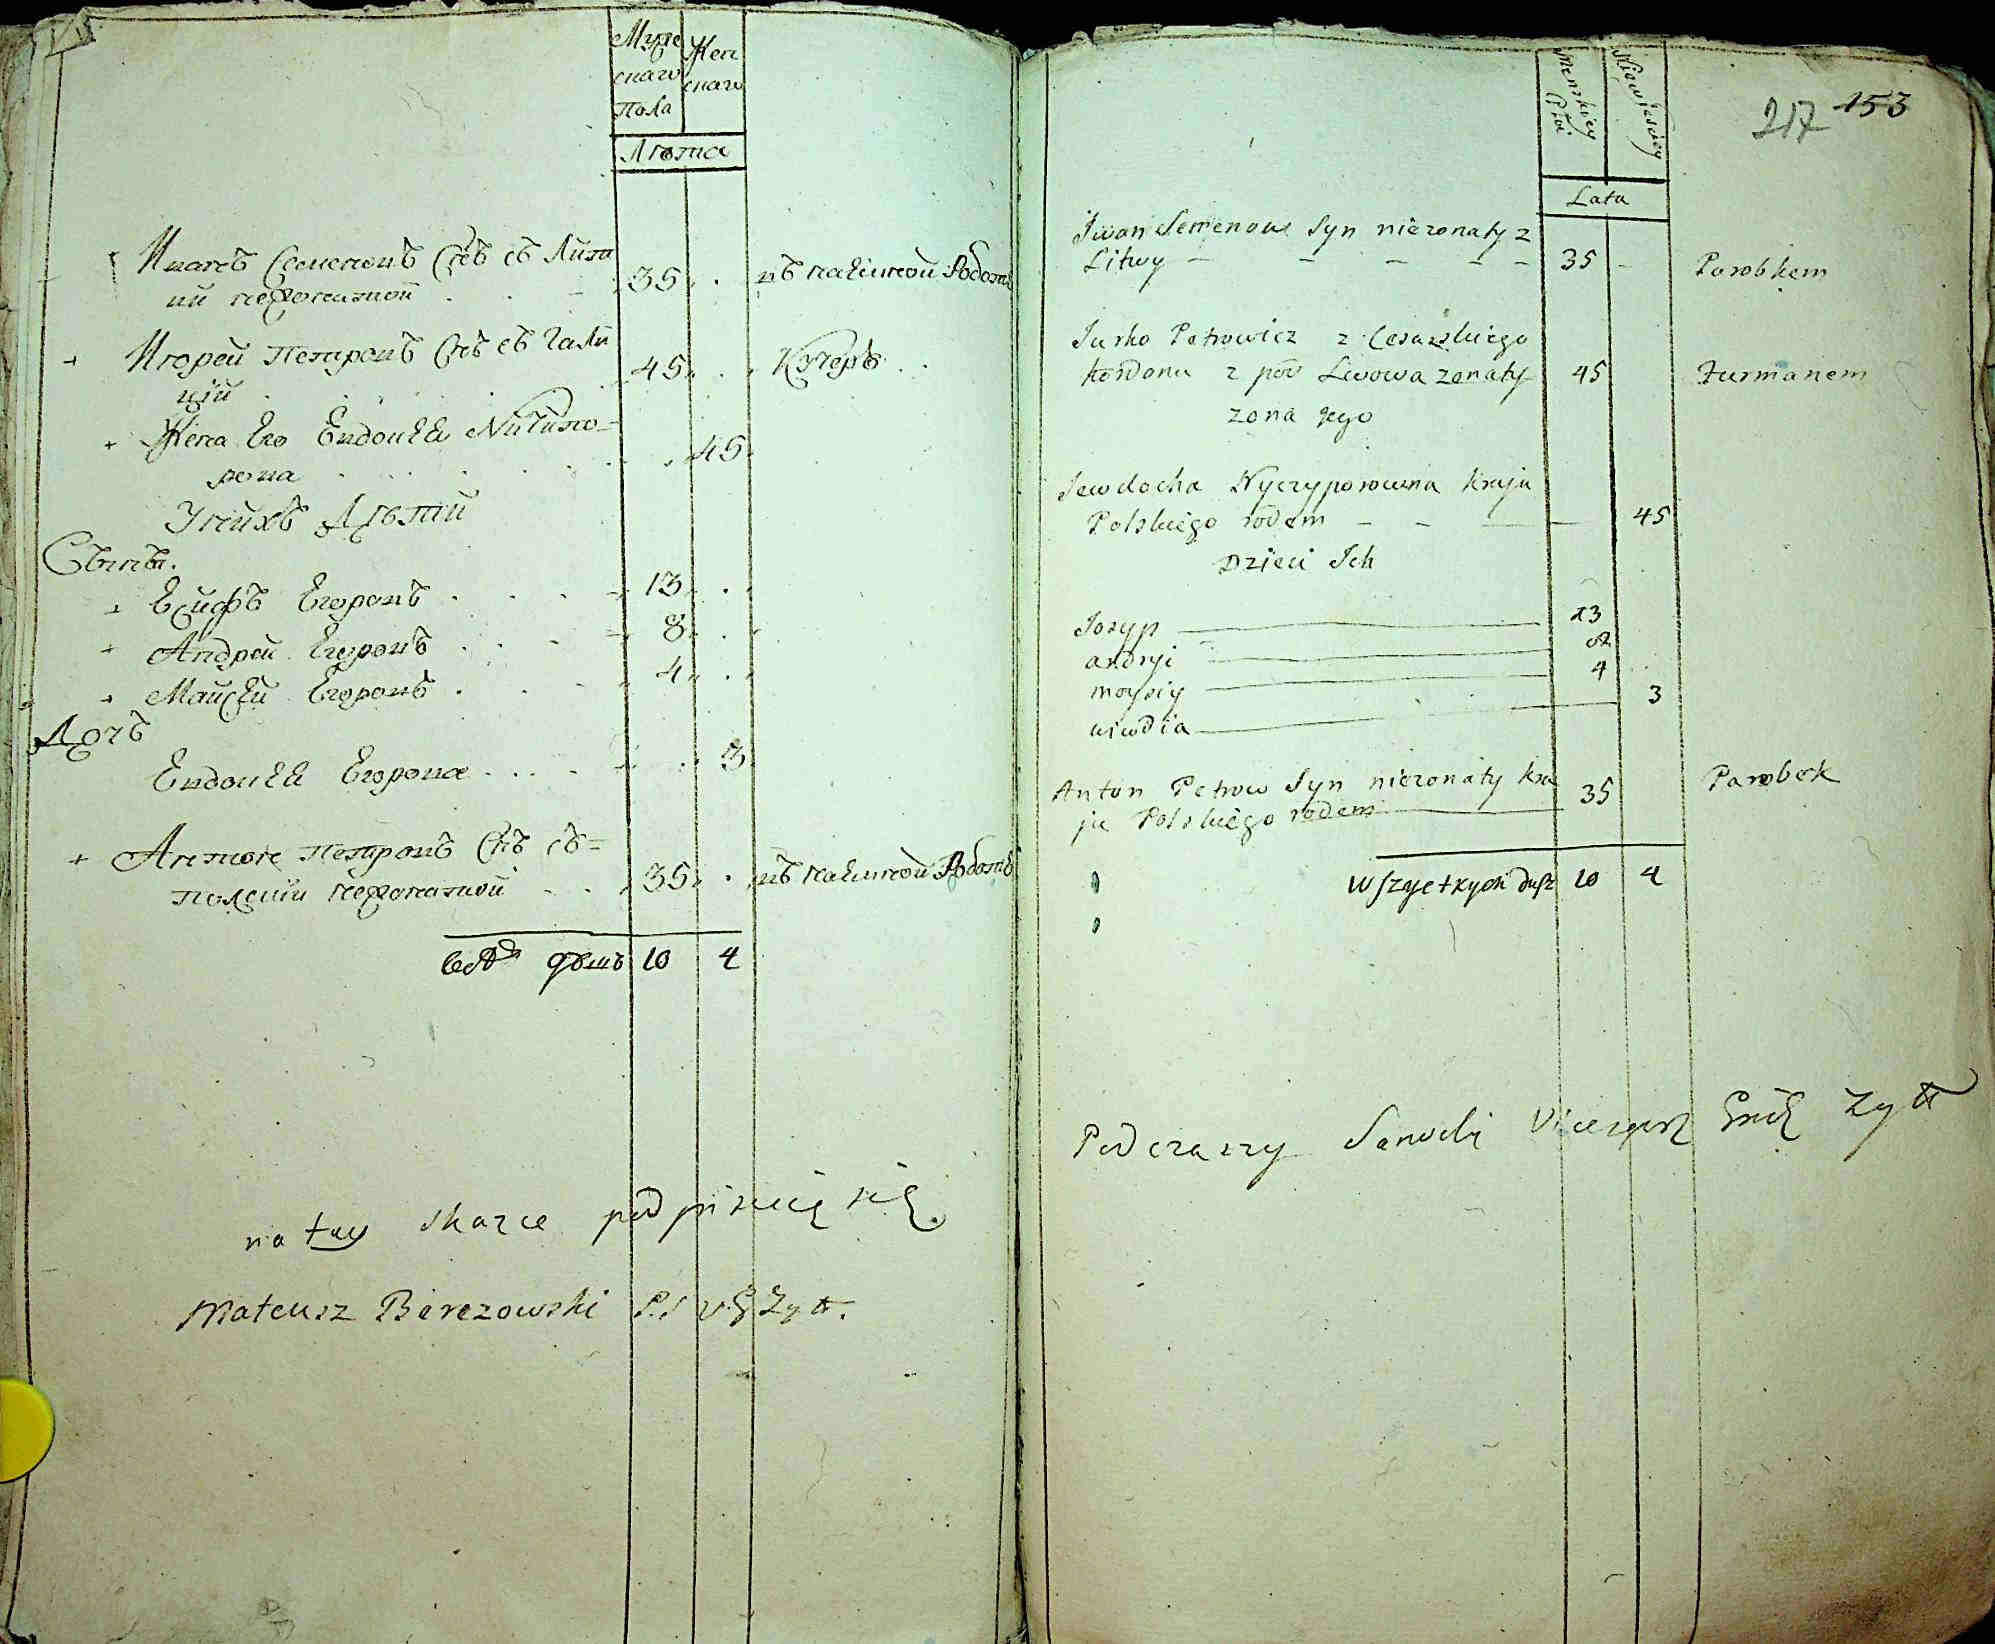 Муже
скаго
пола
Жен
скаго
Лѣта
Иванъ Семеновъ Снъ съ Литв
ии нежонатой 35 въ наемной Работѣ
Игорей Петровъ Снъ съ Гали
ции 45 Кучеръ
Жена Его Евдокія Ничипо-
рова 45
У нихъ Дѣтий
Сыны.
Есифъ Егоровъ 13
Андрей Егоровъ 8
Майсей Егоровъ 4
Дочъ
Евдокія Егорова 3
Антонъ Петровъ Снъ съ=
полщии нежонатой 35 въ наемной Работѣ
душъ 10 4
na tey skazce podpisuię się.
Mateusz Berezowski P.S V G Zytt.
217 153
Menskiey
Płci
Niewiesciey
Lata
Iwan Semenow Syn niezonaty z
Litwy 35 Parobkem
Jurko Petrowicz z Cesarskiego
kordonu z pod Lwowa zonaty 45 Furmanem
zona jego
Jewdocha Nyczyporowna kraju
Polskiego rodem 45
Dzieci Ich
Josyp 13
andryi 8
moysiy 4
wiwdia 3
Anton Petrow Syn niezonaty kra
ju Polskiego rodem 35 Parobek
Wszystkych dusz 10 4
Podczaszy Sanocki Vicezgersz Zytt